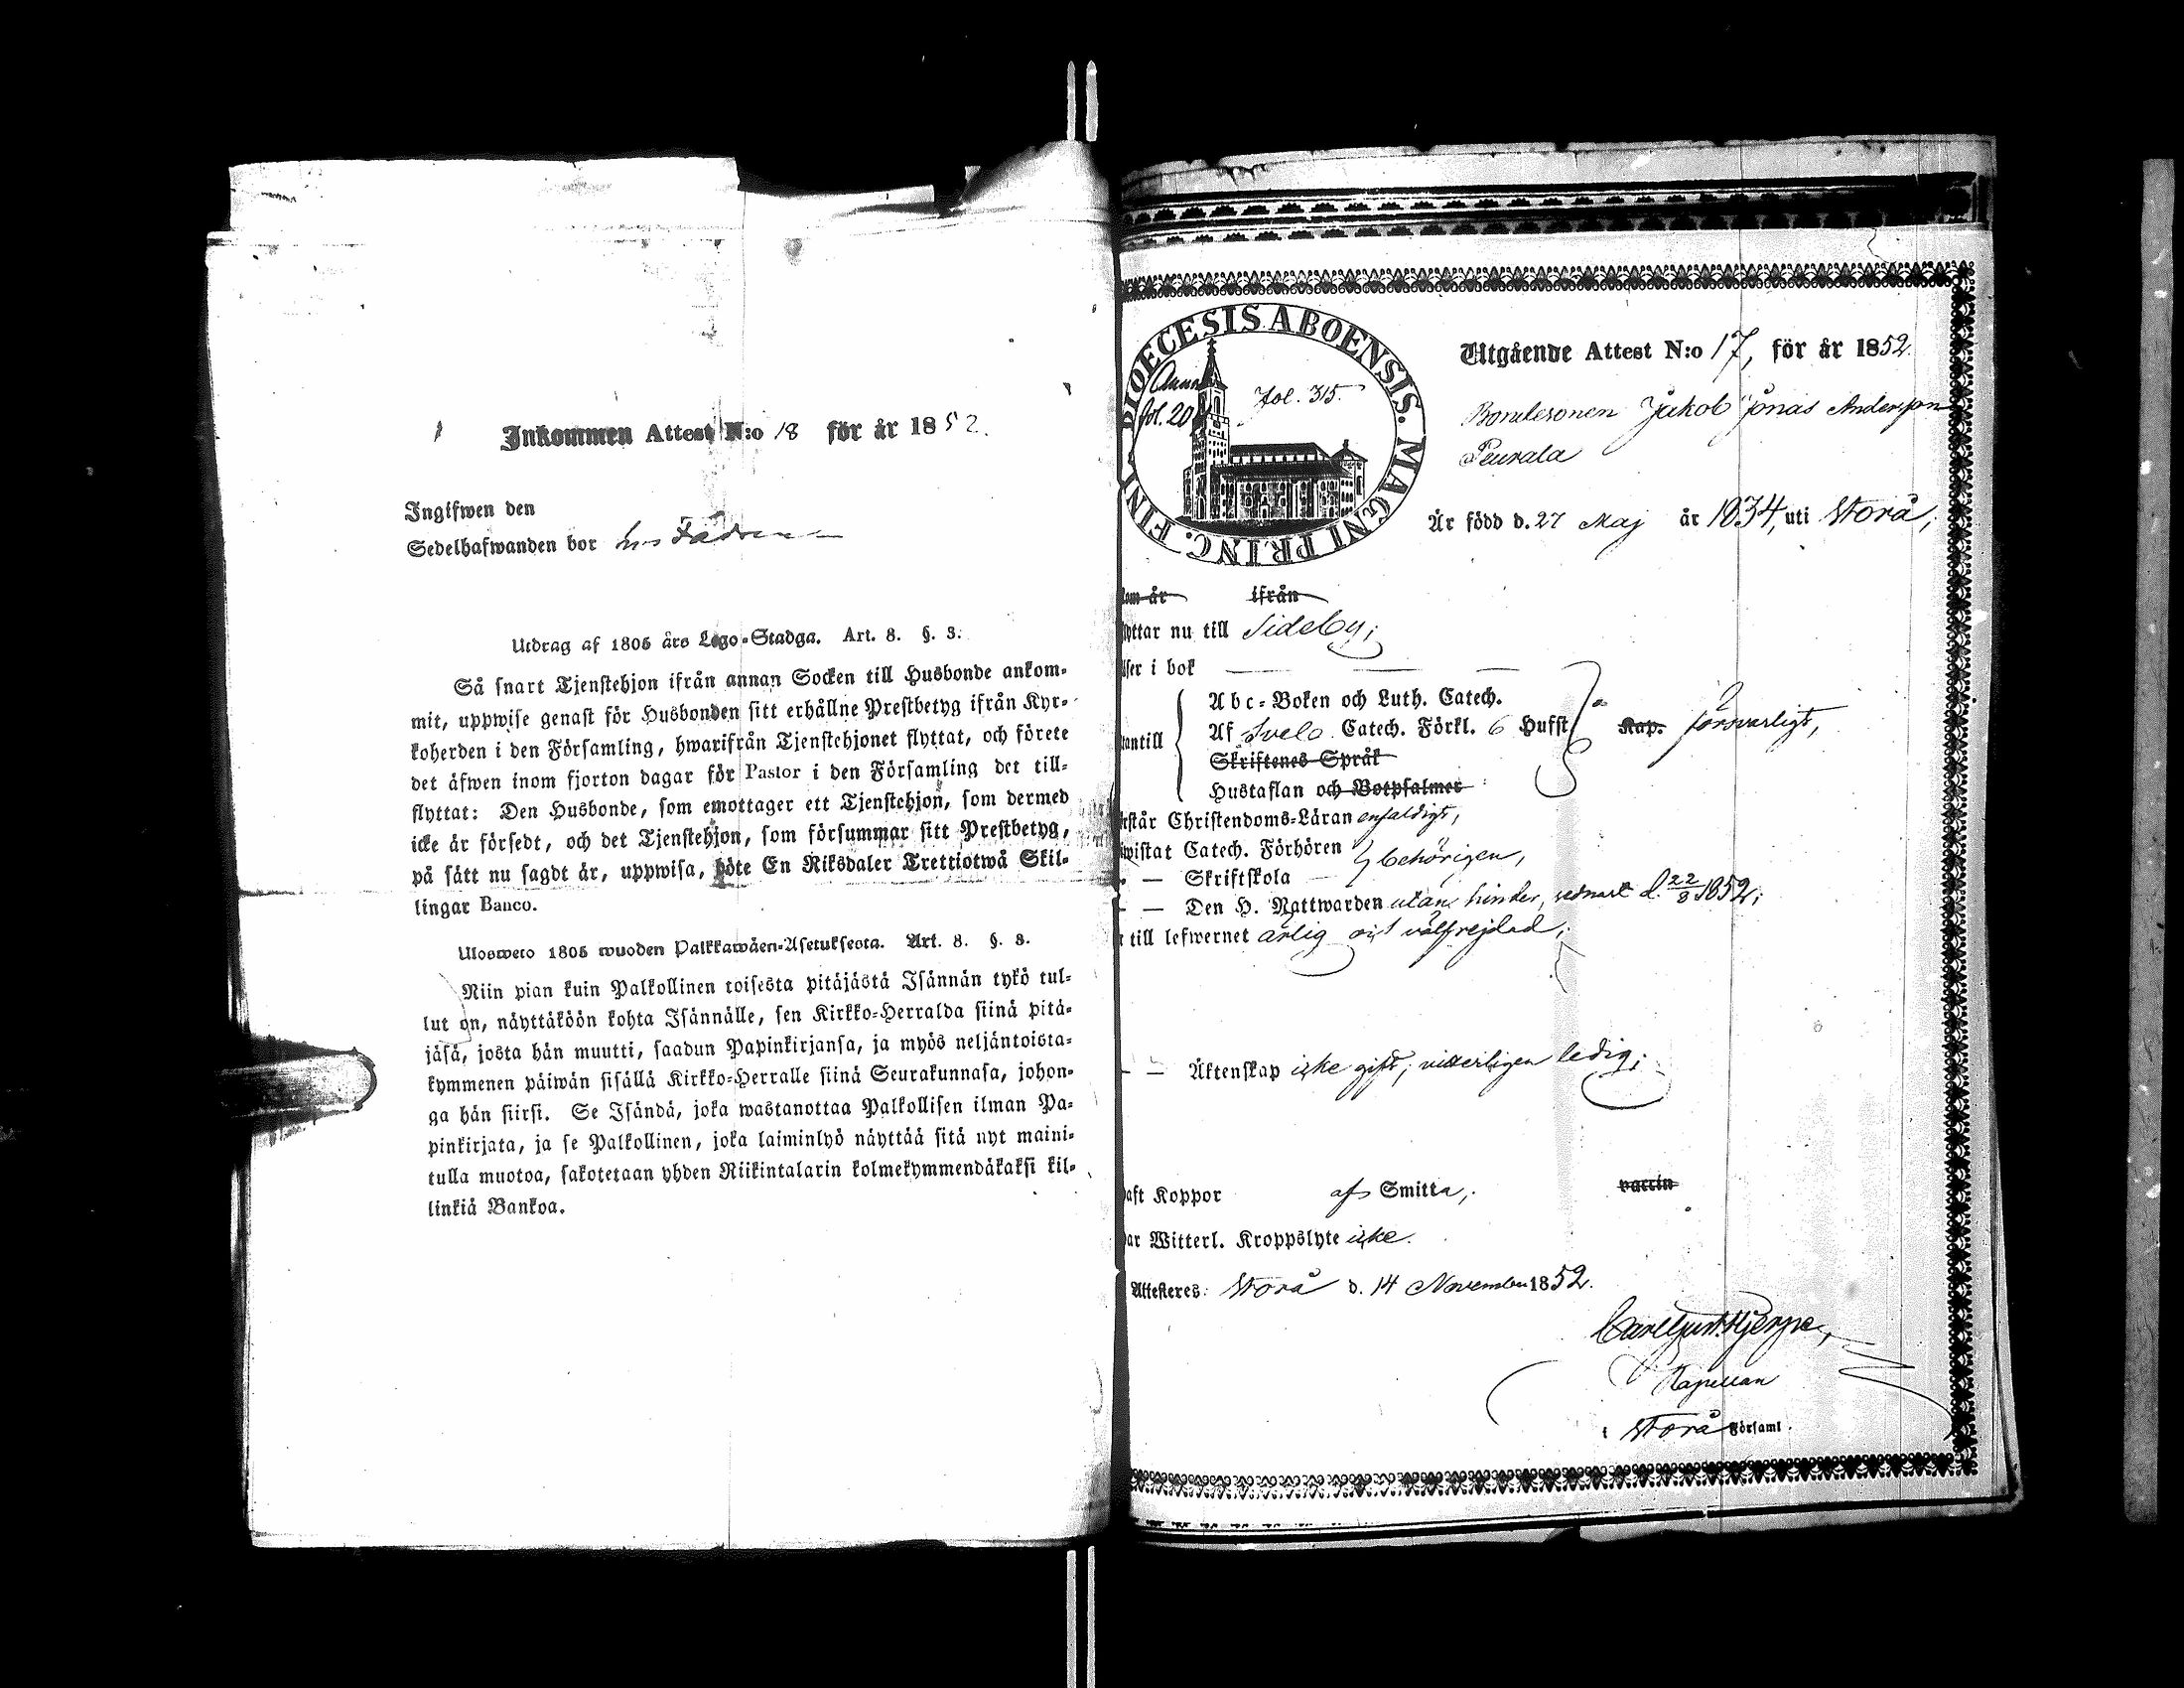 Inkommen Attest N:o 18 för år 1852.
Ingifwen den
Sedelhafwanden bor hos Fädren
Utdrag af 1805 års Lego-Stadga. Art. 8. §. 3.
Så snart Tjenstehjon ifrån annan Socken till Husbonde ankom-
mit, uppwise genast för Husbonden sitt erhållne Prestbetyg ifrån Kyr-
koherden i den Församling, hwarifrån Tjenstehjonet flyttat, och förete
det äfwen inom fjorton dagar för Pastor i den Församling det till-
flyttat: Den Husbonde, som emottager ett Tjenstehjon, som dermed
icke är försedt, och det Tjenstehjon, som försummar sitt Prestbetyg,
på sått nu sagdt är, uppwisa, böte En Riksdaler Trettiotwå Skil-
lingar Banco.
Ulosweto 1805 wuoden Palkkawäen-Asetuksesta. Art. 8. §. 3.
Niin pian kuin Palkollinen toisesta pitäjästä Isännän tykö tul-
lut on, näyttäköön kohta Isännälle, sen Kirkko-Herralda siinä pitä-
jäsä, josta hän muutti, saadun Papinkirjansa, ja myös neljäntoista-
kymmenen päiwän sisällä Kirkko-Herralle siinä Seurakunnasa, johon-
ga hän siirsi. Se Isändä, joka wastanottaa Palkollisen ilman Pa-
pinkirjata, ja se Palkollinen, joka laiminlyö näyttää sitä nyt maini-
tulla muotoa, sakotetaan yhden Riikintalarin kolmekymmendäkaksi kil-
linkiä Bankoa.
DIOECESIS ABOENSIS. MAGNI PRINC. FINL.
fol. 20
fol. 315.
Utgående Attest N:o 17, för år 1852.
Bondesonen Jakob Jonas Andersson
Peurala
Är född d. 27 Maj år 1834, uti Storå;
kom år ifrån
flyttar nu till Sideby;
läser i bok — — —
utantill
Abc-Boken och Luth. Catech.
Af Svebe. Catech. Förkl. 6 Hufst
Skriftenes Språk
Hustaflan och Botpsalmer
Kap. försvarligt,
rstår Christendoms-Läran enfaldigt,
wistat Catech. Förhören
— Skriftskola
behörigen,
— — Den H. Nattwarden utan hinder, sednast d. 22/8 1852;
till lefwernet ärlig och välfrejdad;
— — Äktenskap icke gift, vitterligen ledig;
aft Koppor af Smitta, vaccin
ar Witterl. Kroppslyte icke.
Attesteres: Storå d. 14 November 1852.
Carl Gust. Hjerpe,
Kapellan
i Storå Församl.